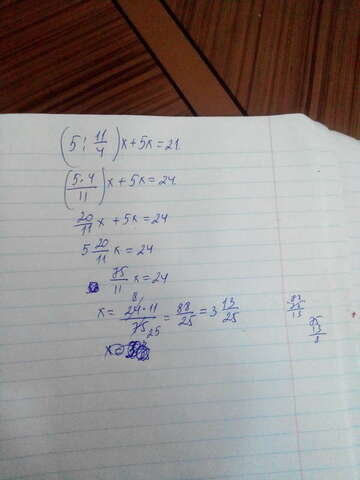 (5 : 11/4)x+5x=24
(5·4/11)x+5x=24
20/11 x+5x=24
5 20/11 x=24
75/11 x=24
x= 24·11/75 = 88/25 = 3 13/25
8
25
x=